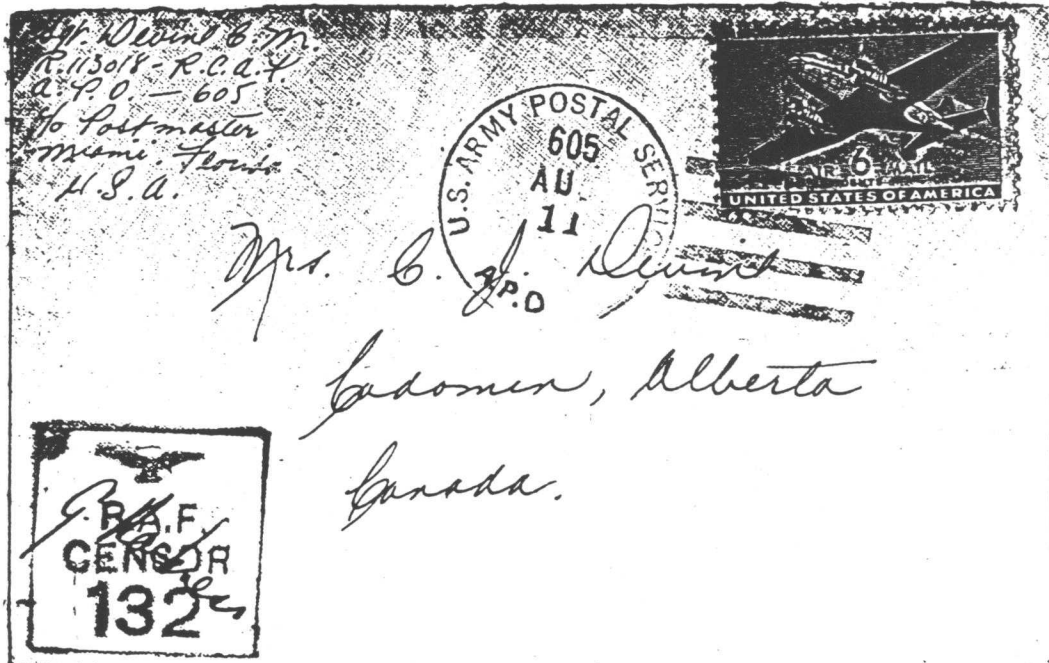 Sgt. Devine C. M.
R.113018 - R.C.A.F.
A.P.O. — 605
c/o Postmaster
Miami. Florida
U.S.A.
U.S. ARMY POSTAL SERVICE
605
AU
11
A.P.O
AIR 6¢ MAIL
UNITED STATES OF AMERICA
Mrs. C. J. Devine
Cadomin, Alberta
Canada.
R.A.F.
CENSOR
132